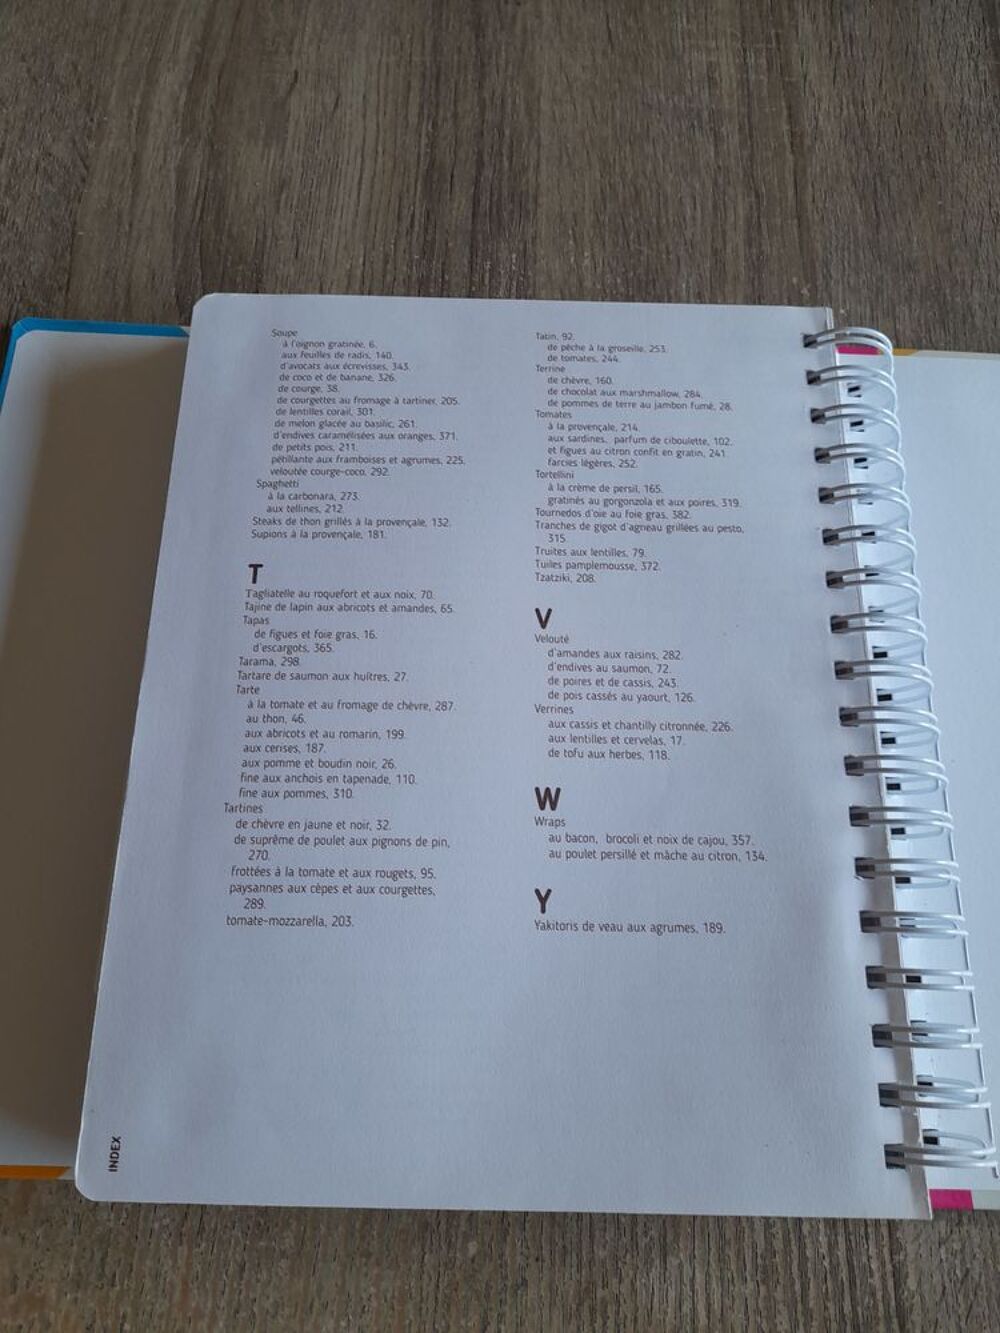 Soupe
à l'oignon gratinée, 6.
aux feuilles de radis, 140.
d'avocats aux écrevisses, 343.
de coco et de banane, 326.
de courge, 38.
de courgettes au fromage à tartiner, 205.
de lentilles corail, 301.
de melon glacée au basilic, 261.
d'endives caramélisées aux oranges, 371.
de petits pois, 211.
pétillante aux framboises et agrumes, 225.
veloutée courge-coco, 292.
Spaghetti
à la carbonara, 273.
aux tellines, 212.
Steaks de thon grillés à la provençale, 132.
Supions à la provençale, 181.
T
Tagliatelle au roquefort et aux noix, 70.
Tajine de lapin aux abricots et amandes, 65.
Tapas
de figues et foie gras, 16.
d'escargots, 365.
Tarama, 298.
Tartare de saumon aux huîtres, 27.
Tarte
à la tomate et au fromage de chèvre, 287.
au thon, 46.
aux abricots et au romarin, 199.
aux cerises, 187.
aux pomme et boudin noir, 26.
fine aux anchois en tapenade, 110.
fine aux pommes, 310.
Tartines
de chèvre en jaune et noir, 32.
de suprême de poulet aux pignons de pin,
270.
frottées à la tomate et aux rougets, 95.
paysannes aux cèpes et aux courgettes,
289.
tomate-mozzarella, 203.
Tatin, 92.
de pêche à la groseille, 253.
de tomates, 244.
Terrine
de chèvre, 160.
de chocolat aux marshmallow, 284.
de pommes de terre au jambon fumé, 28.
Tomates
à la provençale, 214.
aux sardines, parfum de ciboulette, 102.
et figues au citron confit en gratin, 241.
farcies légères, 252.
Tortellini
à la crème de persil, 165.
gratinés au gorgonzola et aux poires, 319.
Tournedos d'oie au foie gras, 382.
Tranches de gigot d'agneau grillées au pesto,
315.
Truites aux lentilles, 79.
Tuiles pamplemousse, 372.
Tzatziki, 208.
V
Velouté
d'amandes aux raisins, 282.
d'endives au saumon, 72.
de poires et de cassis, 243.
de pois cassés au yaourt, 126.
Verrines
aux cassis et chantilly citronnée, 226.
aux lentilles et cervelas, 17.
de tofu aux herbes, 118.
W
Wraps
au bacon, brocoli et noix de cajou, 357.
au poulet persillé et mâche au citron, 134.
Y
Yakitoris de veau aux agrumes, 189.
INDEX